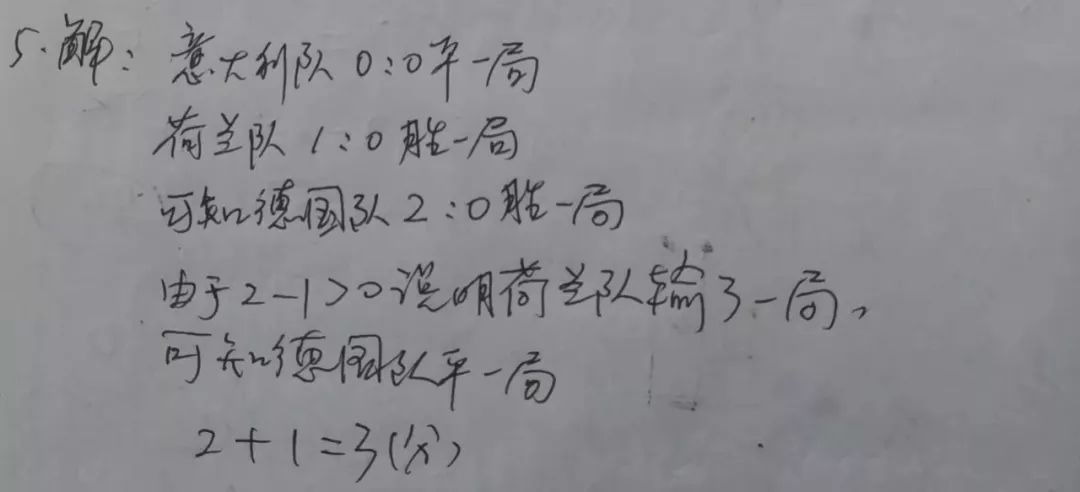 5.解：意大利队 0:0平一局
荷兰队 1:0 胜一局
可知德国队 2:0胜一局
由于2-1>0说明荷兰队输了一局，
可知德国队平一局
2+1=3(分)